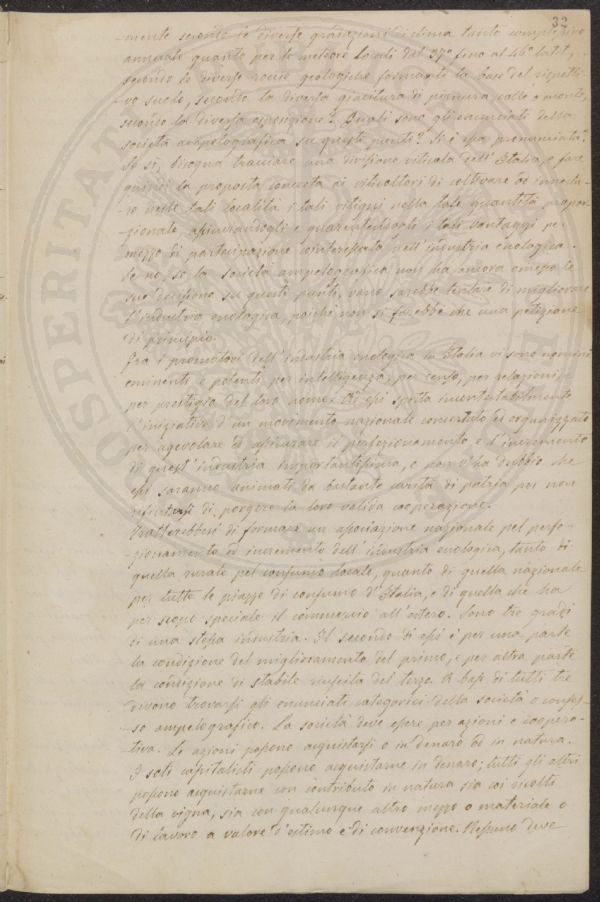 32
-mente secondo le diverse gradazioni di clima tanto complessive
annuali quanto per le meteore locali dal 37° fino al 46° latit,
secondo le diverse rocce geologiche formanti la base del rispetti-
-vo suolo, secondo la diversa giacitura di pianura, colle e monte,
secondo la diversa esposizione? Quali sono gli enunciati della
società ampelografica su questi punti? Si è essa pronunciata?
Se sì, bisogna tracciare una divisione viticola dell'Italia, e fare
quindi la proposta concreta ai viticoltori di coltivare od innesta-
-re nelle tali località i tali vitigni nella tale quantità propor-
-zionale, assicurandogli e guarentendogli i tali vantaggi per
mezzo di partecipazione cointeressata nell'industria enologica.
Se no, se la società ampelografica non ha ancora emesso le
sue decisioni su questi punti, vano sarebbe tentare di migliorare
l'industria enologica, poichè non si farebbe che una petizione
di principio.
Fra i promotori dell'industria enologica in Italia vi sono uomini
eminenti e potenti per intelligenza, per censo, per relazioni,
per prestigio del loro nome. Ad essi spetta incontestabilmente
l'iniziativa d'un movimento nazionale concertato ed organizzato
per agevolare ed assicurare il perfezionamento e l'incremento
di quest'industria importantissima, e non v'ha dubbio che
essi saranno animati da bastante carità di patria per non
rifiutarsi di porgere la loro valida cooperazione.
Tratterebbesi di formare un associazione nazionale pel perfe-
-zionamento ed incremento dell'industria enologica, tanto di
quella rurale pel consumo locale, quanto di quella nazionale
per tutte le piazze di consumo d'Italia, e di quella che ha
per scopo speciale il commercio all'estero. Sono tre gradi
di una stessa industria. Il secondo di essi è per una parte
la condizione del miglioramento del primo, e per altra parte
la condizione di stabile riuscita del terzo. A base di tutti tre
devono trovarsi gli enunciati categorici della società o conses-
so ampelografico. La società deve essere per azioni e coopera-
-tiva. Le azioni possono acquistarsi o in denaro od in natura.
I soli capitalisti possono acquistarne in denaro; tutti gli altri
possono acquistarne con contributo in natura sia coi rivolti
della vigna, sia con qualunque altro mezzo o materiale o
di lavoro a valore d'estimo e di convenzione. Nessuno deve